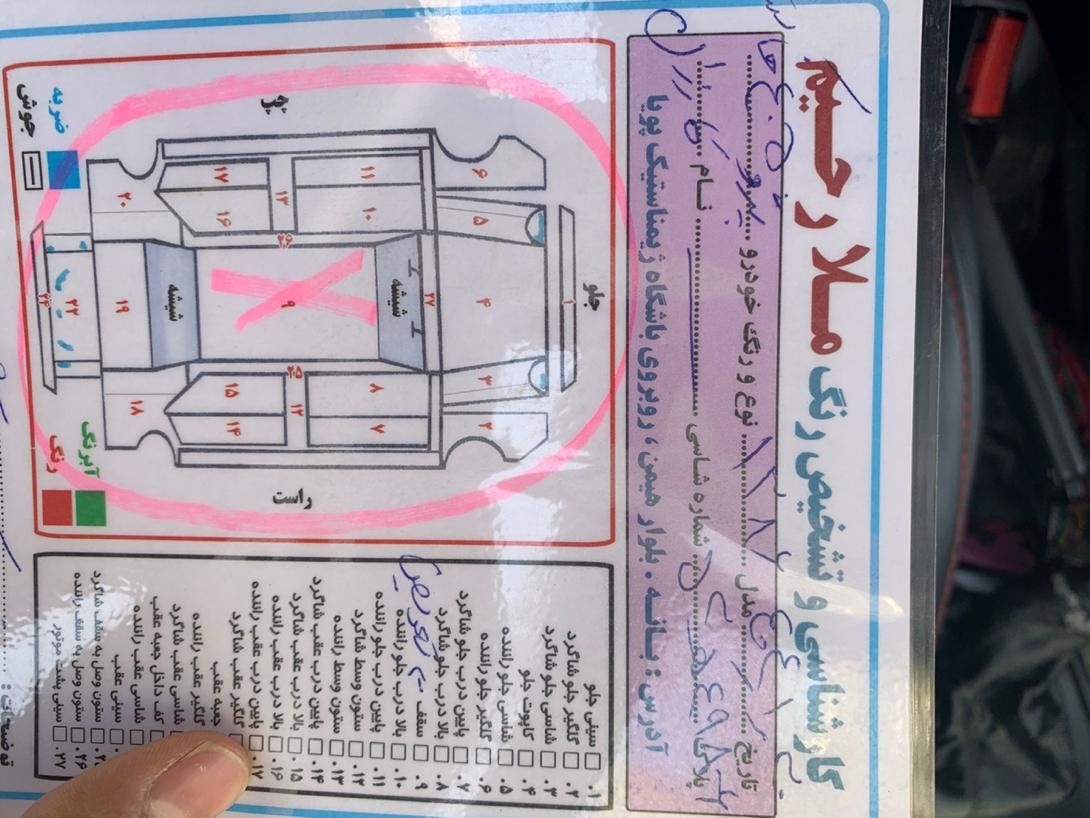 کارشناسی و تشخیص رنگ ملا رحیم
تاریخ مدل ۱۳۸۷ نوع و رنگ خودرو
پلاک شماره شاسی نام
آدرس : بانه ، بلوار هیمن ، روبروی باشگاه ژیمناستیک پویا
جلو
چپ
راست
شیشه
شیشه
۱
۲
۳
۴
۵
۶
۷
۸
۹
۱۰
۱۱
۱۲
۱۳
۱۴
۱۵
۱۶
۱۷
۱۸
۱۹
۲۰
۲۲
۲۴
۲۵
۲۶
۲۷
ضربه
جوش
آبرنگ
رنگ
۱. سینی جلو
۲. گلگیر جلو شاگرد
۳. شاسی جلو شاگرد
۴. کاپوت جلو
۵. شاسی جلو راننده
۶. گلگیر جلو راننده
۷. پایین درب جلو شاگرد
۸. بالا درب جلو شاگرد
۹. سقف تعویض
۱۰. بالا درب جلو راننده
۱۱. پایین درب جلو راننده
۱۲. ستون وسط شاگرد
۱۳. ستون وسط راننده
۱۴. پایین درب عقب شاگرد
۱۵. بالا درب عقب شاگرد
۱۶. بالا درب عقب راننده
۱۷. پایین درب عقب راننده
گلگیر عقب شاگرد
جعبه عقب
گلگیر عقب راننده
شاسی عقب شاگرد
کف داخل جعبه عقب
شاسی عقب راننده
سینی عقب
ستون وصل به سقف شاگرد
۲۶. ستون وصل به سقف راننده
۲۷. سینی پشت موتور
توضیحات :